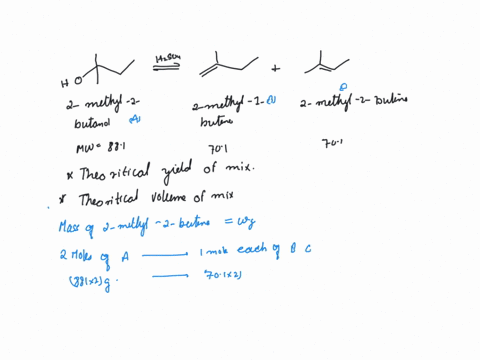 H O H₂SO₄ +
2- methyl -2- butanol A
2-methyl-1- butene B
2- methyl -2- butene
MW = 88.1 70.1 70.1
* Theoritical yield of mix.
* Theoritical volume of mix
Mass of 2-methyl-2-butene = wg
2 Moles of A —— 1 mole each of B C
(88.1x2)g —— 70.1x2)